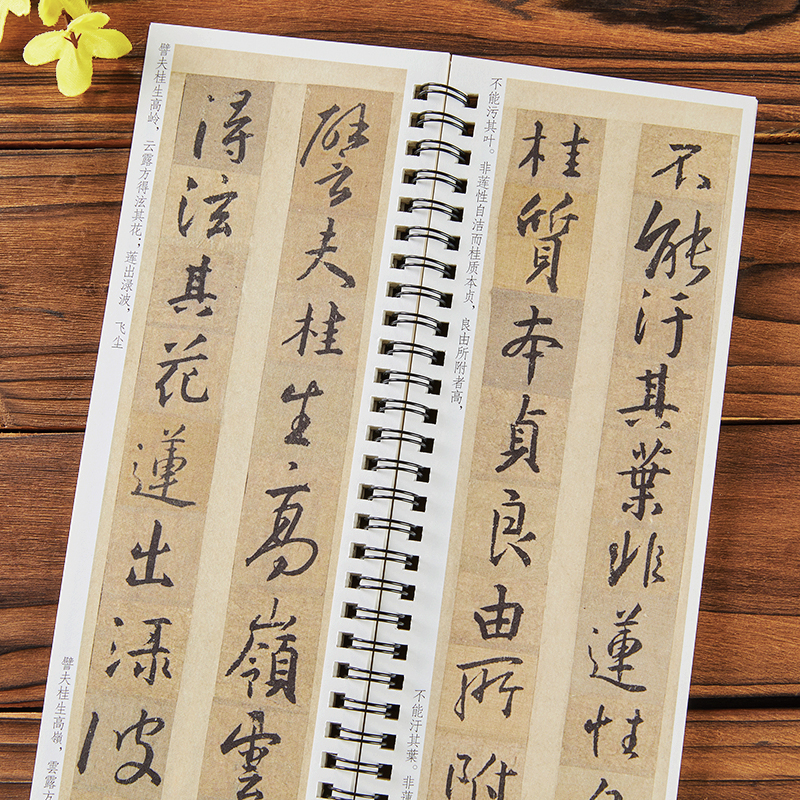 譬夫桂生高嶺雲
得泫其花蓮出渌波
譬夫桂生高岭，云露方得泫其花；莲出渌波，飞尘
譬夫桂生高嶺，雲露方
不能汙其葉非蓮性
桂質本貞良由所附
不能污其叶。非莲性自洁而桂质本贞，良由所附者高，
不能汙其葉。非蓮